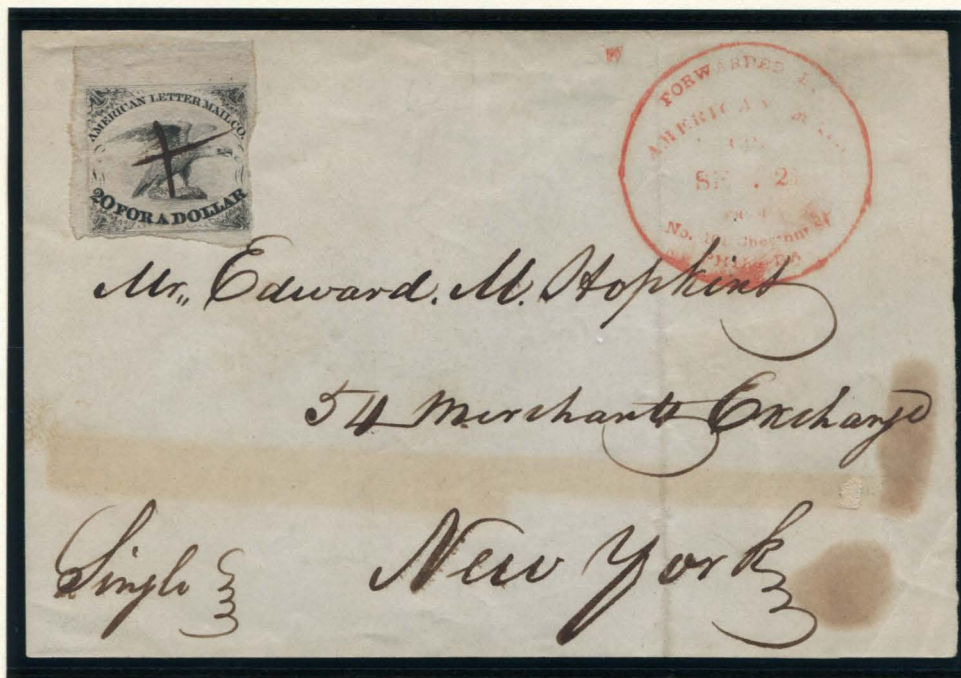 AMERICAN LETTER MAIL CO.
20 FOR A DOLLAR
FORWARDED
AMERICAN
No. 101 Chestnut St
Mr,, Edward. M. Hopkins
54 Merchants Exchange
Single
New York